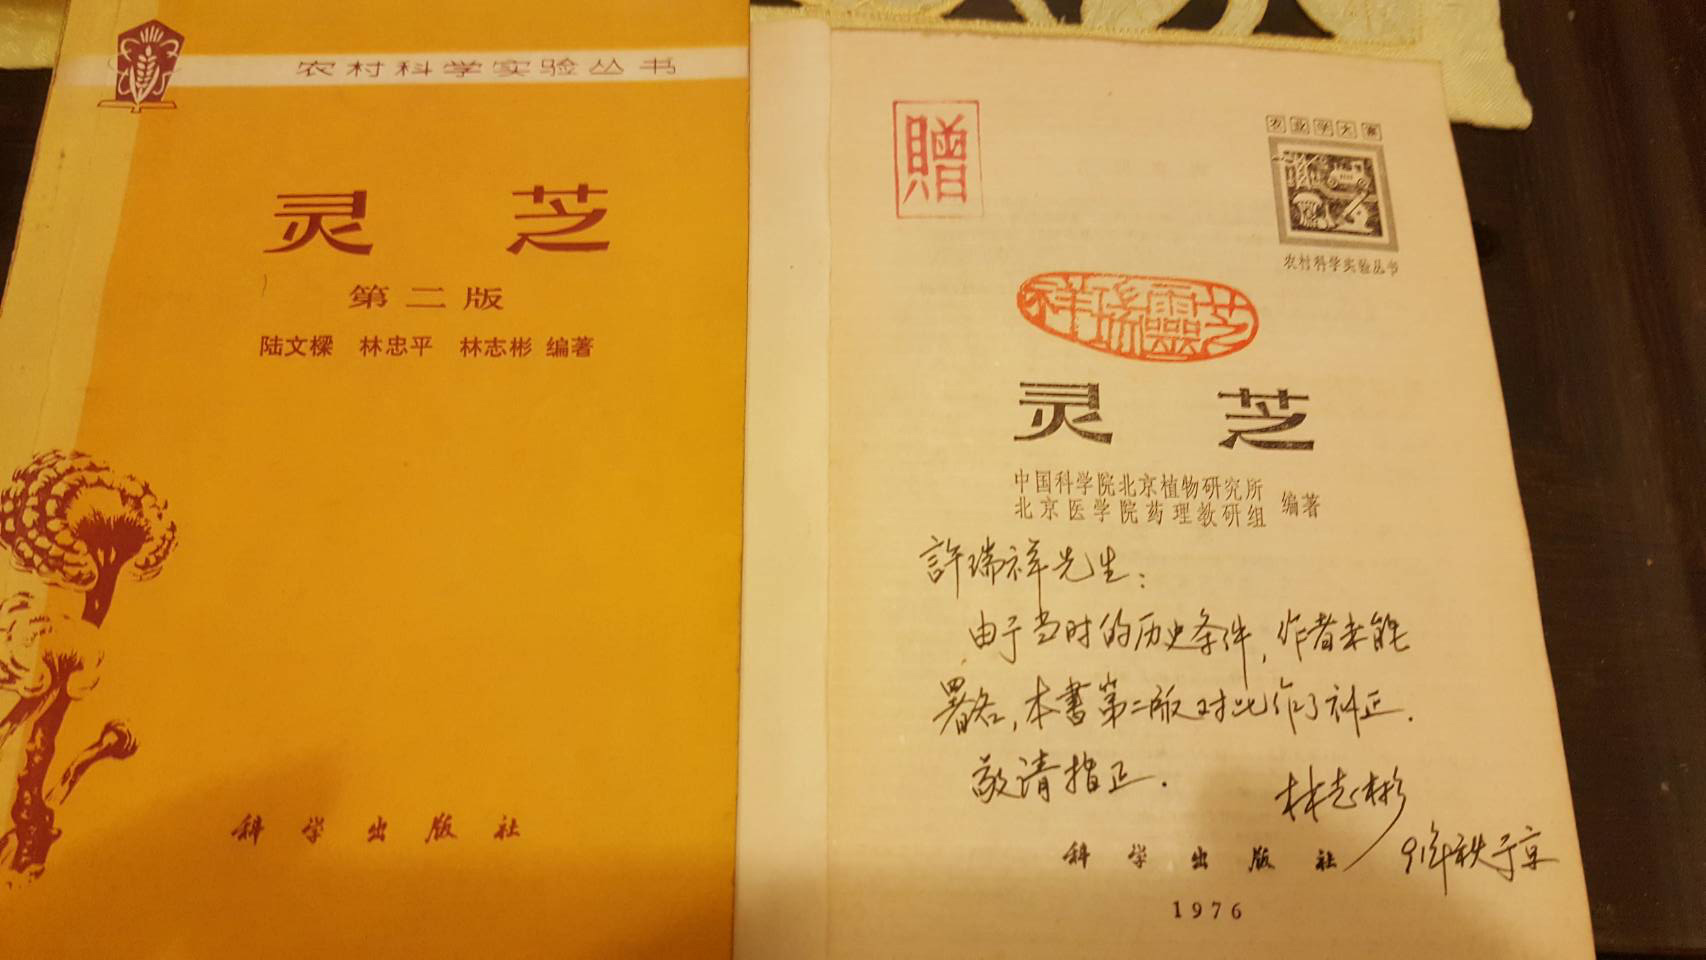 农村科学实验丛书
灵芝
第二版
陆文樑 林忠平 林志彬 编著
科学出版社
贈
农业学大寨
农村科学实验丛书
祥瑞靈芝
灵芝
中国科学院北京植物研究所
北京医学院药理教研组 编著
許瑞祥先生：
由于当时的历史条件，作者未能
署名，本書第二版对此作了补正.
敬请指正.
林志彬
91年秋于京
科学出版社
1976